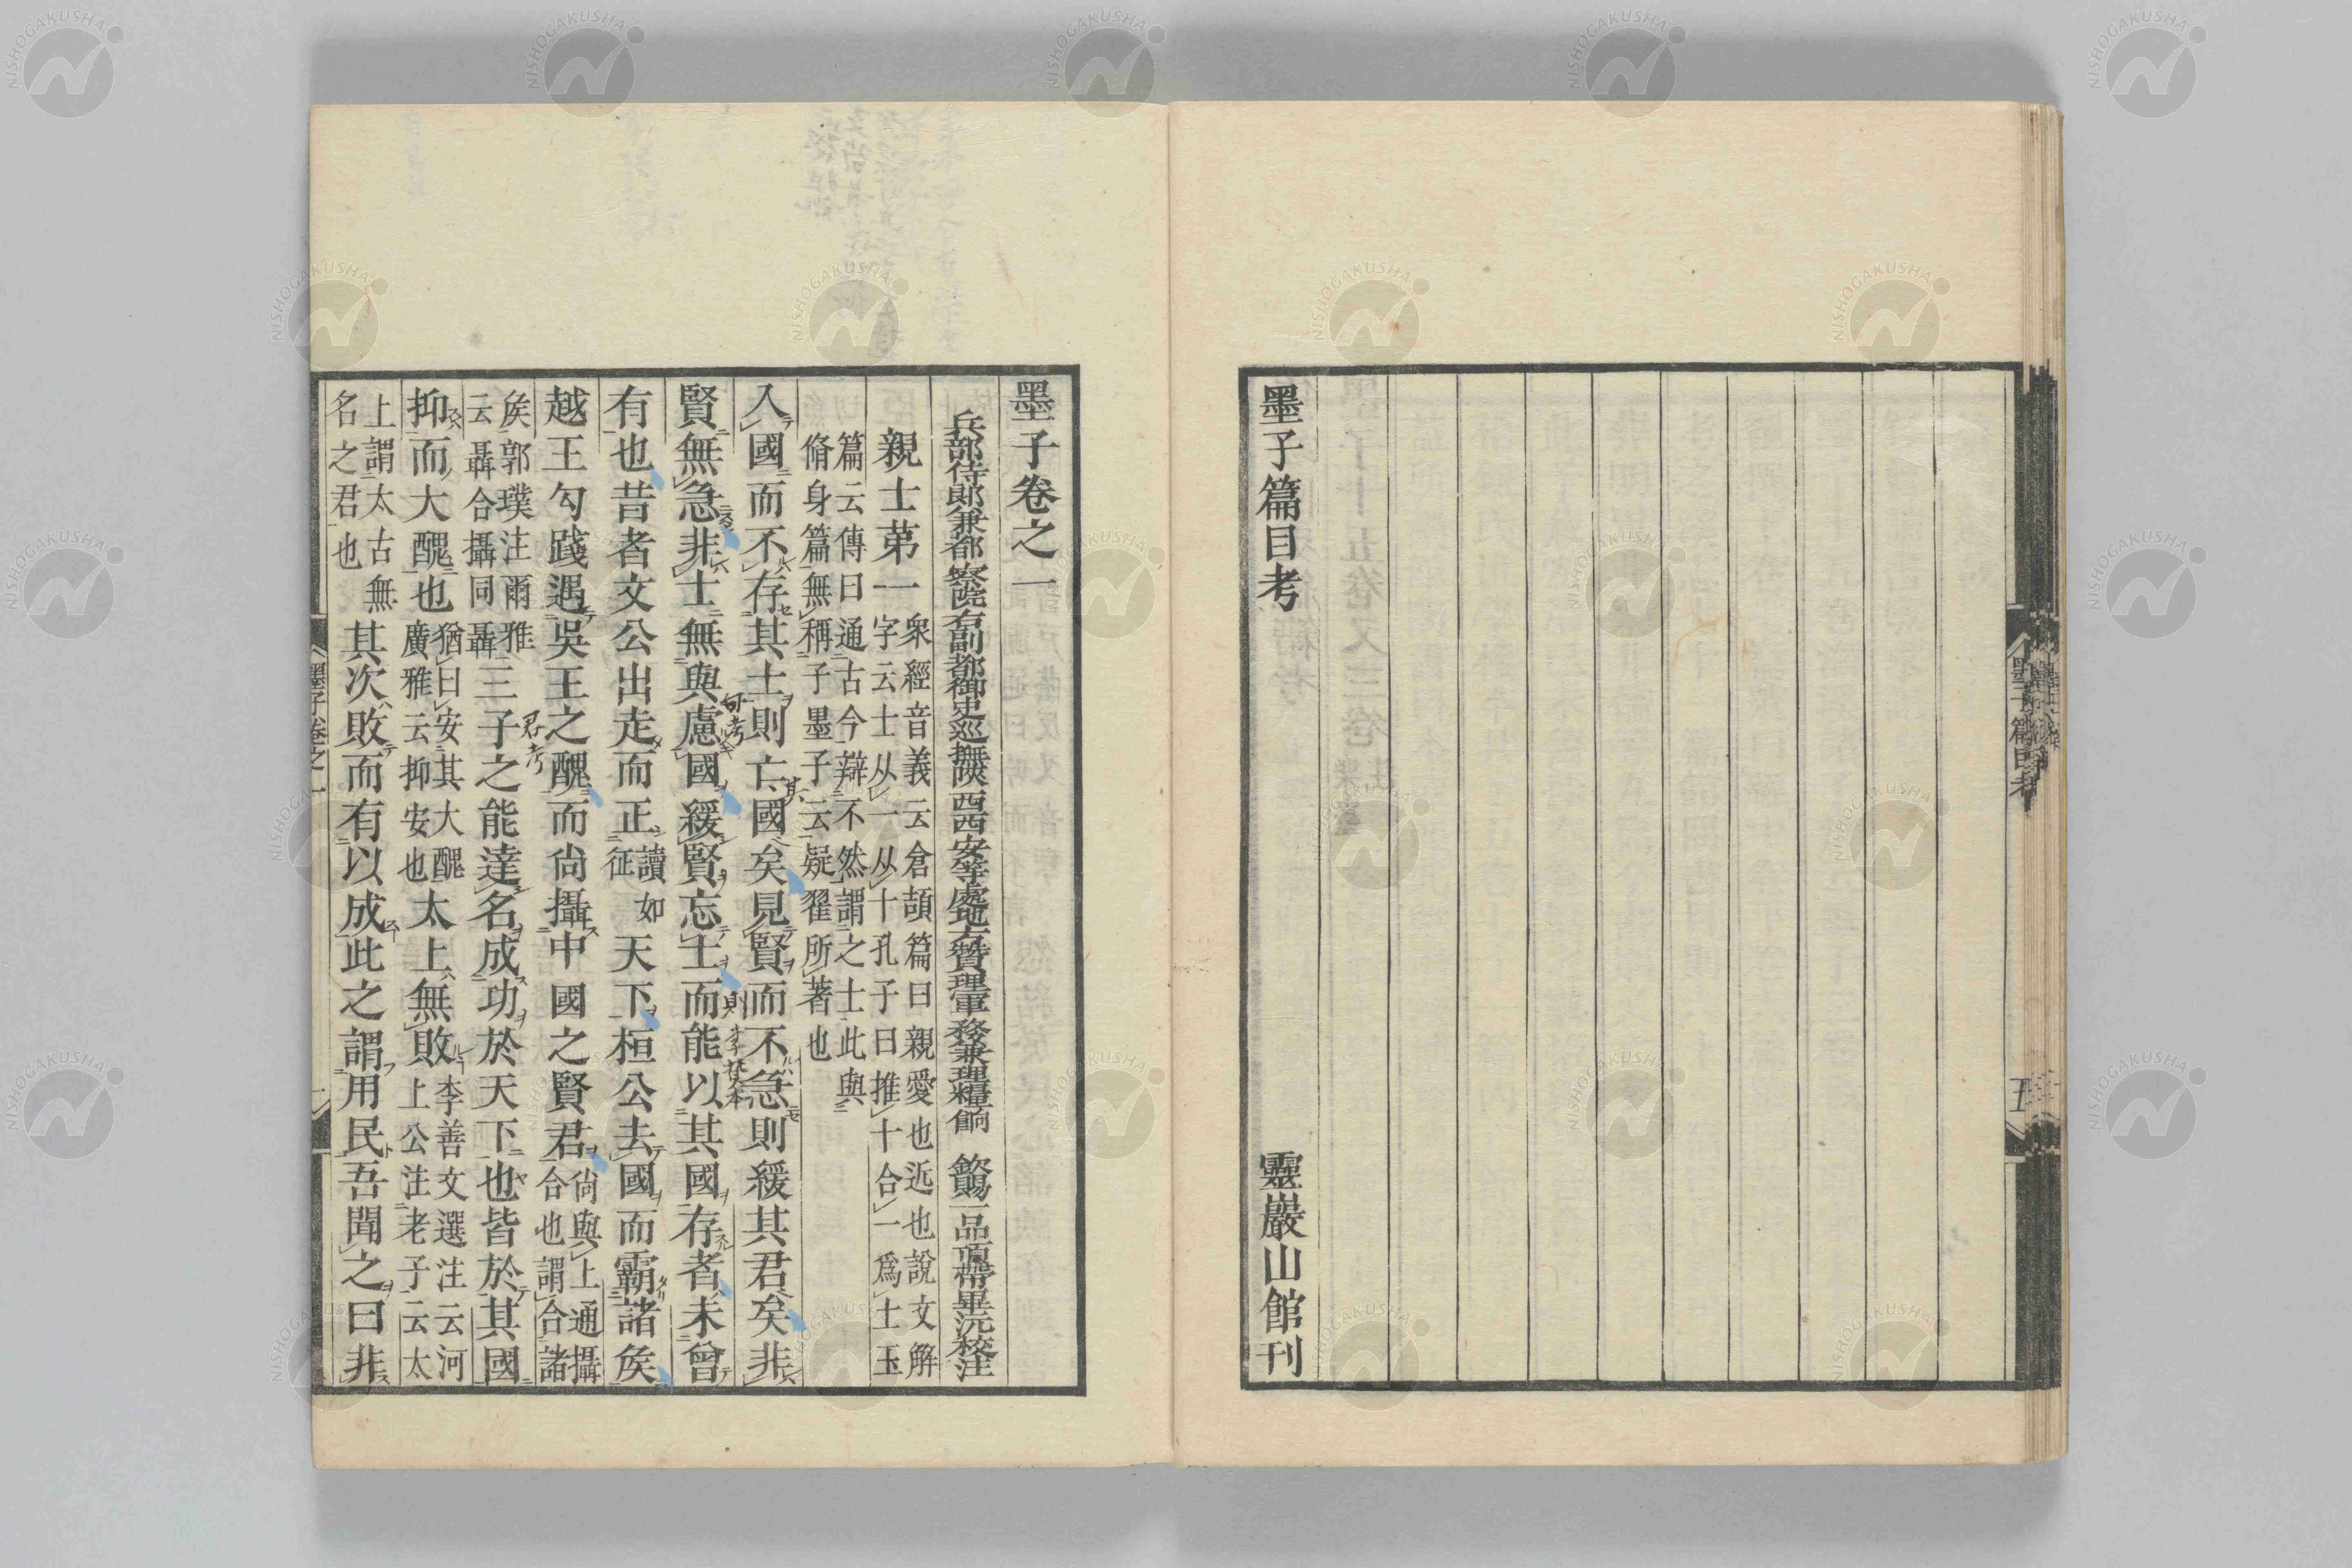 墨子篇目考
靈巖山館刊
墨子卷之一
兵部侍郎兼都察院右副都御史巡撫陝西西安等處地方贊理軍務兼理糧餉 欽賜一品頂帶畢沅校注
親士第一
衆經音義云倉頡篇曰親愛也近也說文解
字云士从一从十孔子曰推十合一爲士玉
篇云傳曰通古今辯不然謂之士此與
脩身篇無稱子墨子云疑翟所著也
入國而不存其士則亡國矣見賢而不急則緩其君矣非
賢無急非士無與慮國緩賢忘士而能以其國存者未曾
有也昔者文公出走而正
讀如
征
天下桓公去國而霸諸矦
越王勾踐遇吳王之醜而尙攝中國之賢君
尙與上通攝
合也謂合諸
矦郭璞注爾雅
云聶合攝同聶
三子之能達名成功於天下也皆於其國
抑而大醜也
猶曰安其大醜
廣雅云抑安也
太上無敗
李善文選注云河
上公注老子云太
上謂太古無
名之君也
其次敗而有以成此之謂用民吾聞之曰非
墨子卷之一
墨子篇目考
五
NISHOGAKUSHA